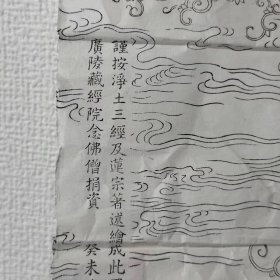 謹按淨土三經及蓮宗著述繪成此
廣陵藏經院念佛僧捐資 癸未